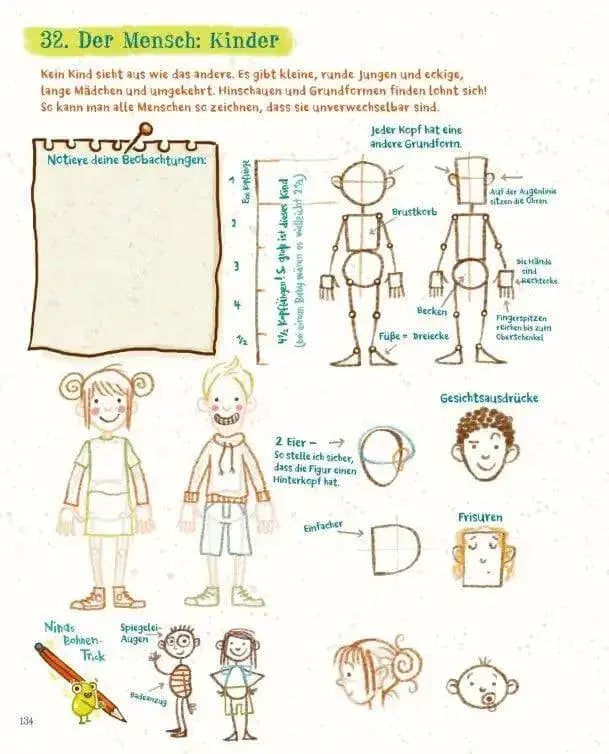 32. Der Mensch: Kinder
Kein Kind sieht aus wie das andere. Es gibt kleine, runde Jungen und eckige,
lange Mädchen und umgekehrt. Hinschauen und Grundformen finden lohnt sich!
So kann man alle Menschen so zeichnen, dass sie unverwechselbar sind.
Notiere deine Beobachtungen:
1
2
3
4
1/2
Eine Kopflänge
4 1/2 Kopflängen! So groß ist dieses Kind
(bei einem Baby wären es vielleicht 2 1/2)
Jeder Kopf hat eine
andere Grundform.
Auf der Augenlinie
sitzen die Ohren.
Brustkorb
Die Hände
sind
Rechtecke.
Becken
Fingerspitzen
reichen bis zum
Oberschenkel
Füße = Dreiecke
Gesichtsausdrücke
2 Eier –
So stelle ich sicher,
dass die Figur einen
Hinterkopf hat.
Einfacher
Frisuren
Ninas
Bohnen-
Trick
Spiegelei-
Augen
Badeanzug
134